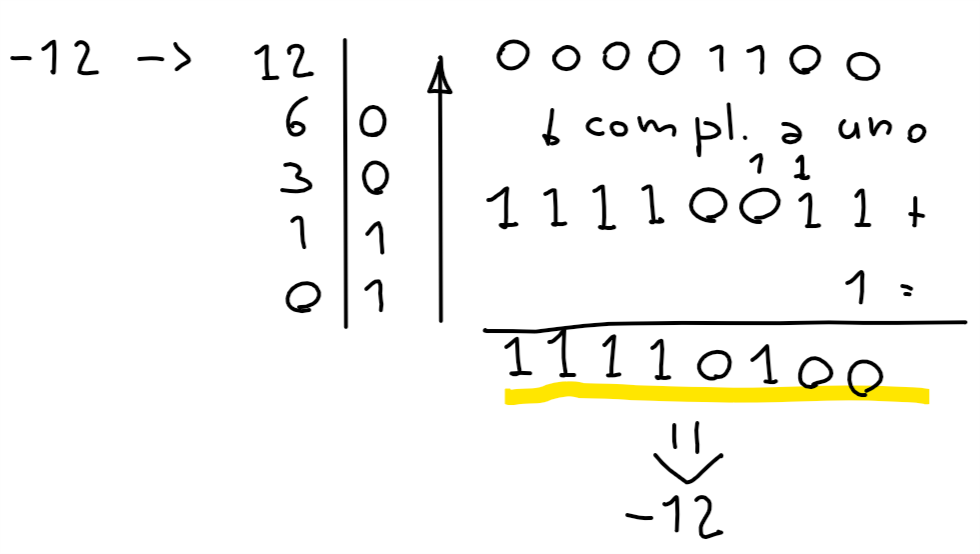 -12 -> 12
6 0
3 0
1 1
0 1
0 0 0 0 1 1 0 0
compl. a uno
1 1
1 1 1 1 0 0 1 1 +
1 =
1 1 1 1 0 1 0 0
-12